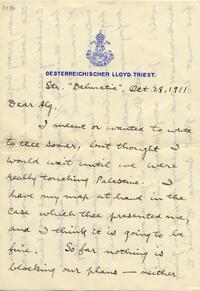 OESTERREICHISCHER LLOYD, TRIEST.
Str. "Dalmatia", Oct 28, 1911
Dear Alg.
I meant or wanted to write
to thee sooner, but thought I
would wait until we were
really touching Palestine. I
have my map at hand in the
case which thee presented me,
and I think it is going to be
fine. So far nothing is
blocking our plans — neither